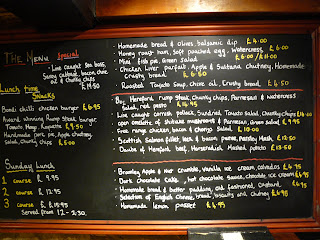 The Menu Special
- Line caught sea bass,
Savoy cabbage, bacon, chive
oil & Chunky chips
£14.50
Lunch time
Snacks
Bondi chilli chicken burger £6.95
Award winning Rump steak burger
Tomato, Mayo, Rapeseed £7.50
Handmade pork pie, Apple chutney,
Salad, Chunky chips £5.00
Sunday Lunch
1 course £ 9.95
2 course £ 12.95
3 course £ 15.95
Served from 12 - 2:30
- Homemade bread & olives, balsamic dip £ 4.00
- Honey roast ham, soft poached egg, Watercress, £ 6.00
- Mini fish pie, Green Salad £ 6.00 / £11.00
- Chicken Liver parfait, Apple & Sultana chutney, Homemade
Crusty bread £ 6.50
- Roasted Tomato Soup, Chive oil, Crusty bread £ 4.50
- 8oz Hereford rump steak, Chunky chips, Parmesan & watercress
salad, red pesto £ 15.95
- Line caught cornish pollock, Sundried Tomato Salad, Chunky chips £14.00
- Open omelette of Shitake mushrooms & Parmesan, Green Salad £ 9.95
- Free range chicken, bacon & Chorizo Salad £ 10.00
- Scottish Salmon fillet, leek & bacon puree, Parsley Mash £ 13.50
- Daube of Hereford beef, Horseradish Mashed potato £ 13.50
- Bramley Apple & Pear crumble, vanilla ice cream, calvados £4.95
- Dark chocolate Cake, hot chocolate sauce, chocolate ice cream £4.95
- Homemade bread & butter pudding, old fashioned, Custard, £4.95
- Selection of English Cheese, bread, biscuits and chutney £6.95
- Homemade lemon posset £4.95